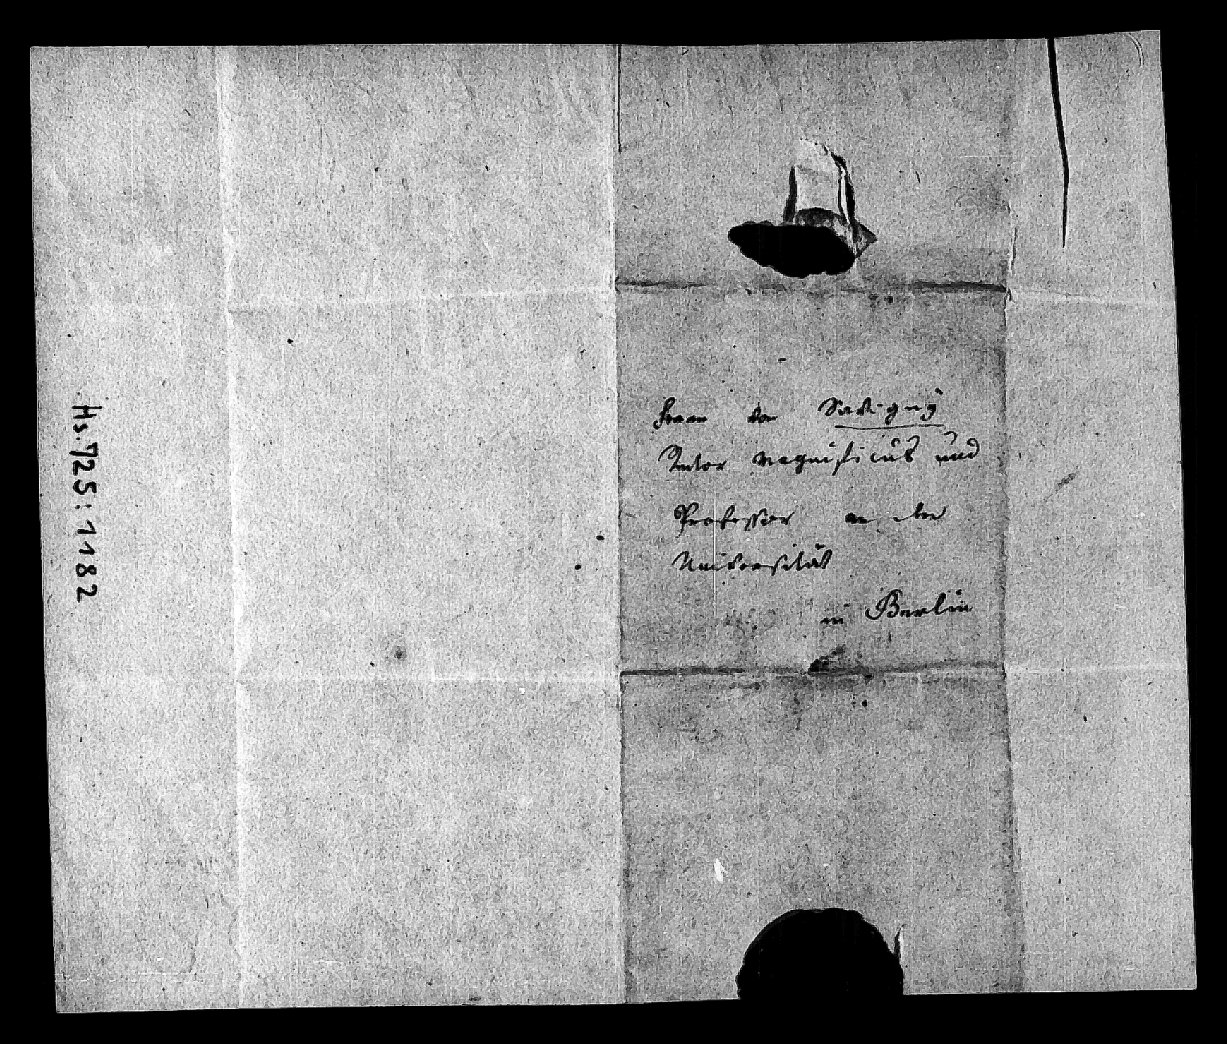 Herrn von Savigny
Rector magnificus und
Professor an der
Universität
in Berlin
Hs. 725: 1182